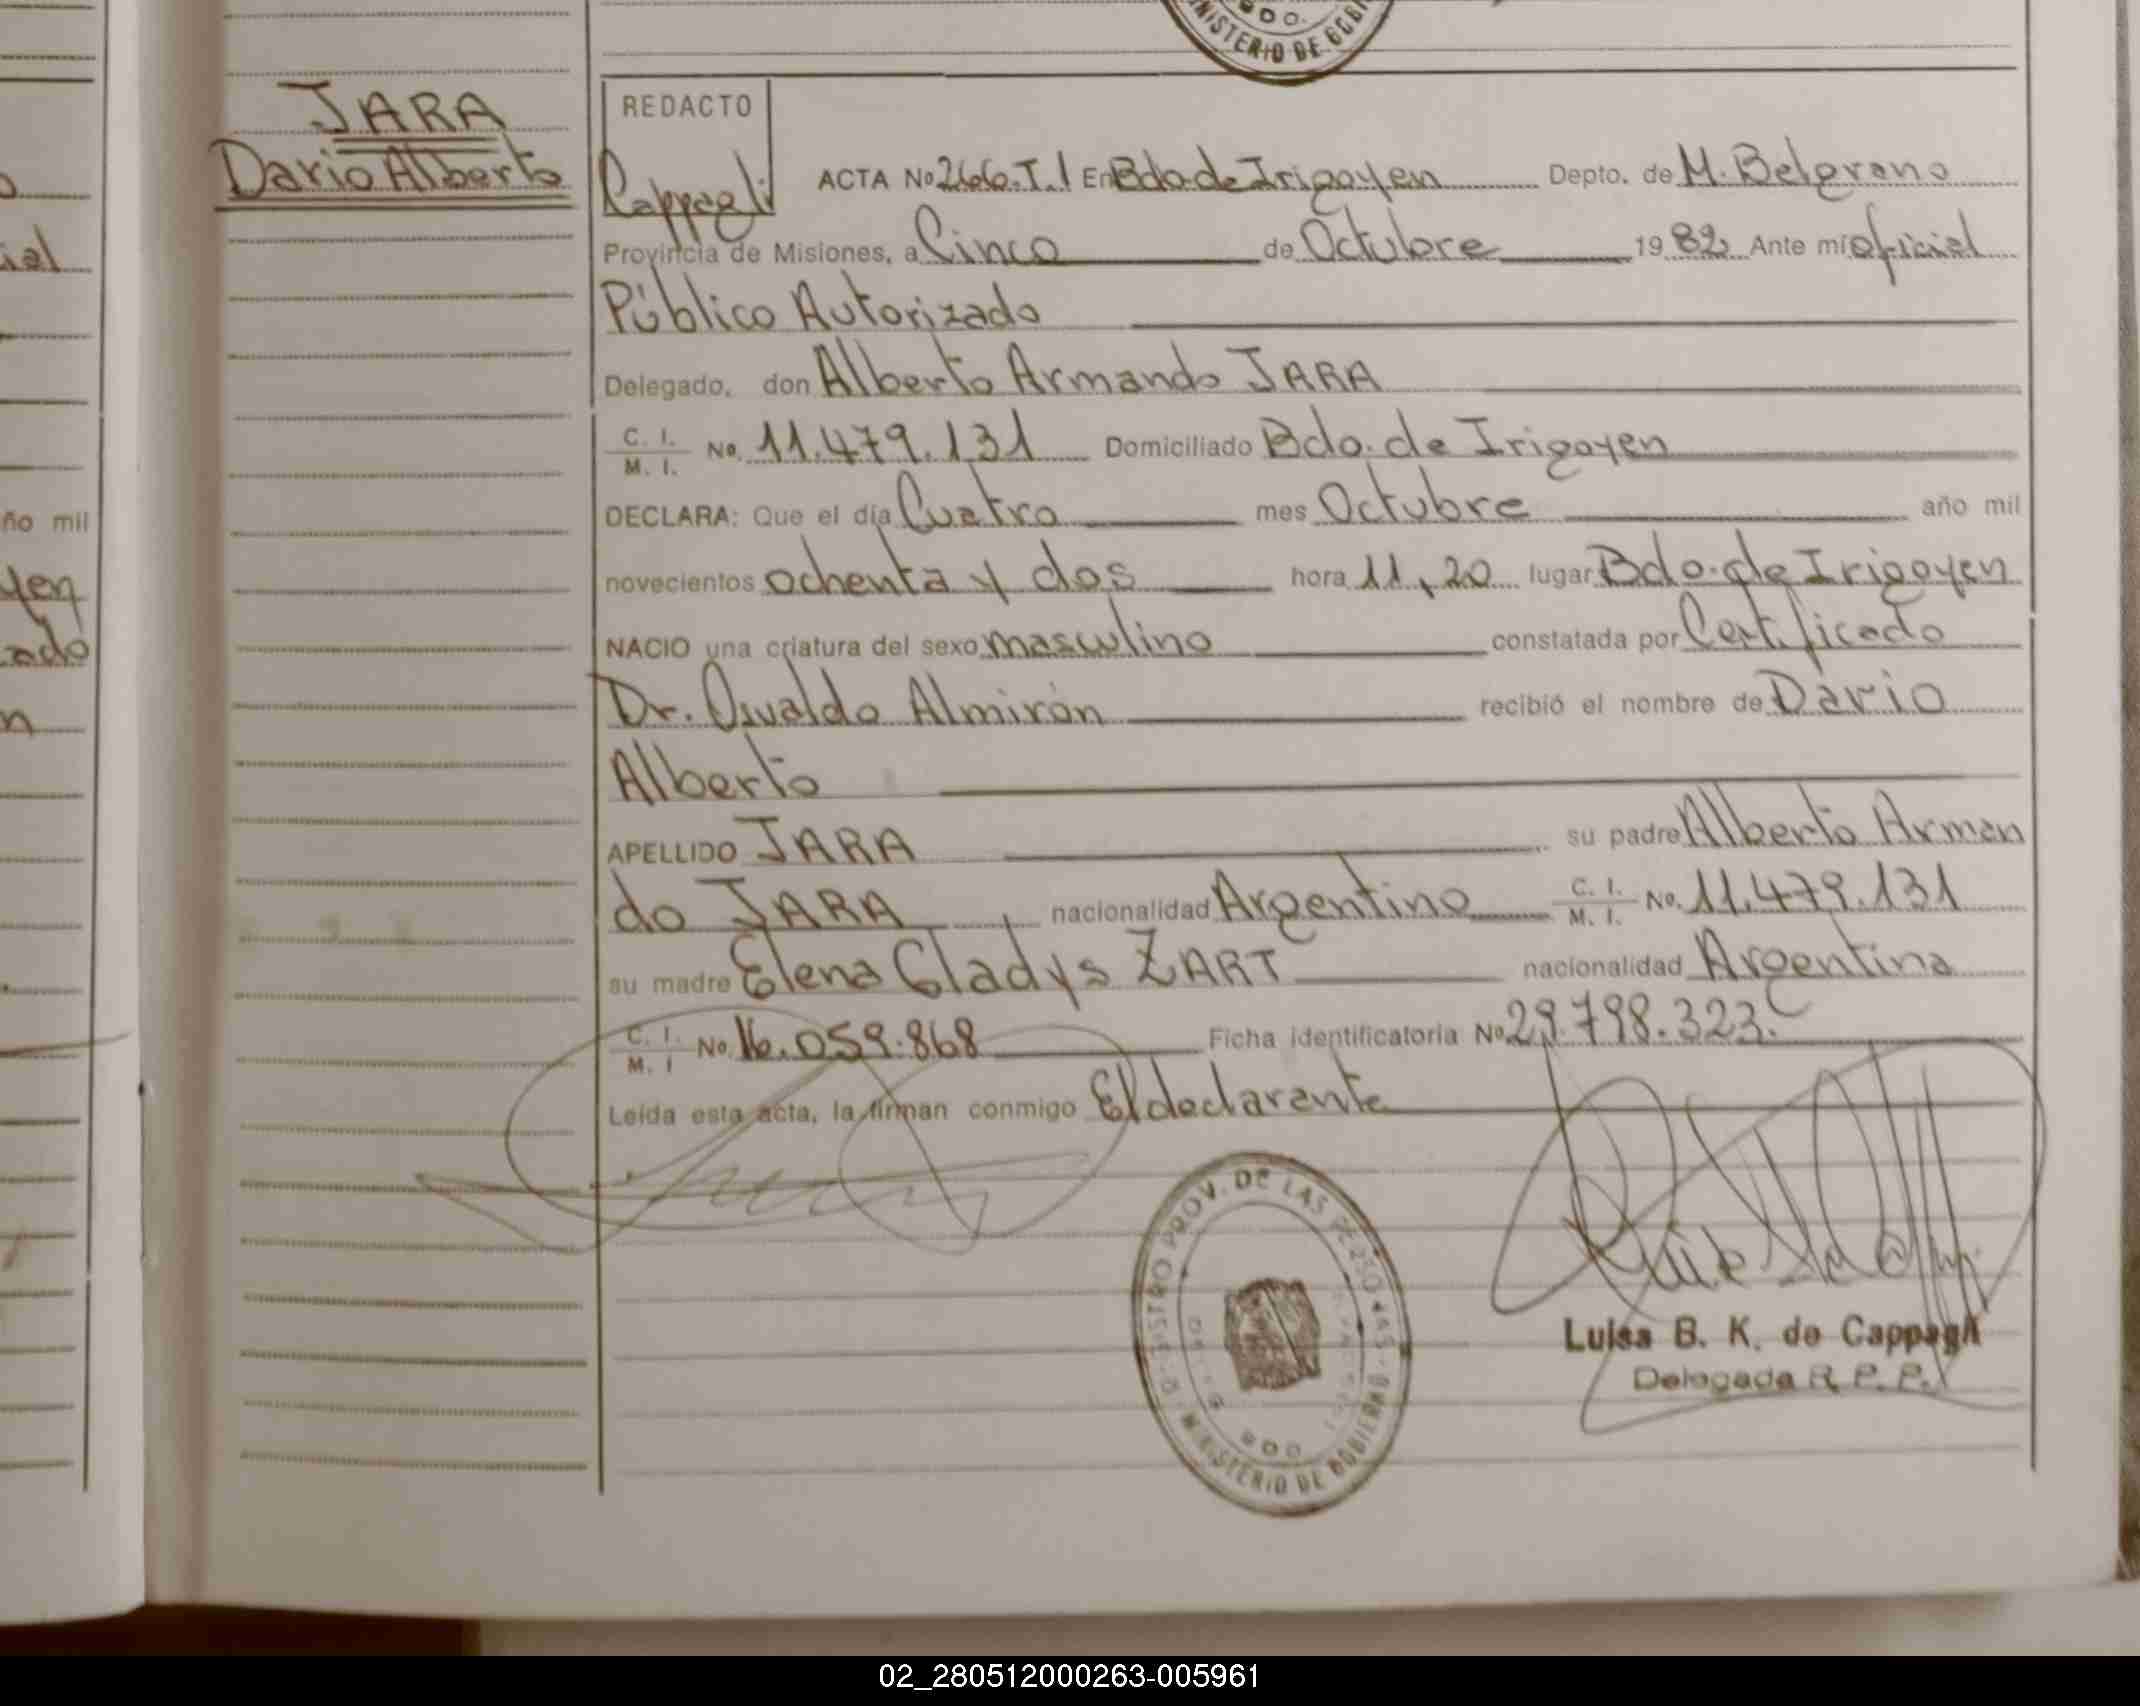 MINISTERIO DE GOBI
JARA
Dario Alberto
REDACTO
Cappagli
ACTA No 266.T.I En Bdo. de Irigoyen Depto. de M. Belgrano
Provincia de Misiones, a Cinco de Octubre 19 82 Ante mí oficial
Público Autorizado
Delegado, don Alberto Armando JARA
C. I.
M. I. No. 11.479.131 Domiciliado Bdo. de Irigoyen
DECLARA: Que el día Cuatro mes Octubre año mil
novecientos ochenta y dos hora 11,20 lugar Bdo. de Irigoyen
NACIO una criatura del sexo masculino constatada por Certificado
Dr. Osvaldo Almirón recibió el nombre de Dario
Alberto
APELLIDO JARA su padre Alberto Arman
do JARA, nacionalidad Argentino C. I. M. I. No. 11.479.131
su madre Elena Gladys ZART nacionalidad Argentina
C. I. M. I No. 16.059.868 Ficha identificatoria No 29.798.323.
Leída esta acta, la firman conmigo El declarante
PROV. DE LAS PERSONAS
MINISTERIO DE GOBIERNO
Luisa B. K. de Cappagli
Delegada R. P. P.
ial
ño mil
yen
n
02_280512000263-005961